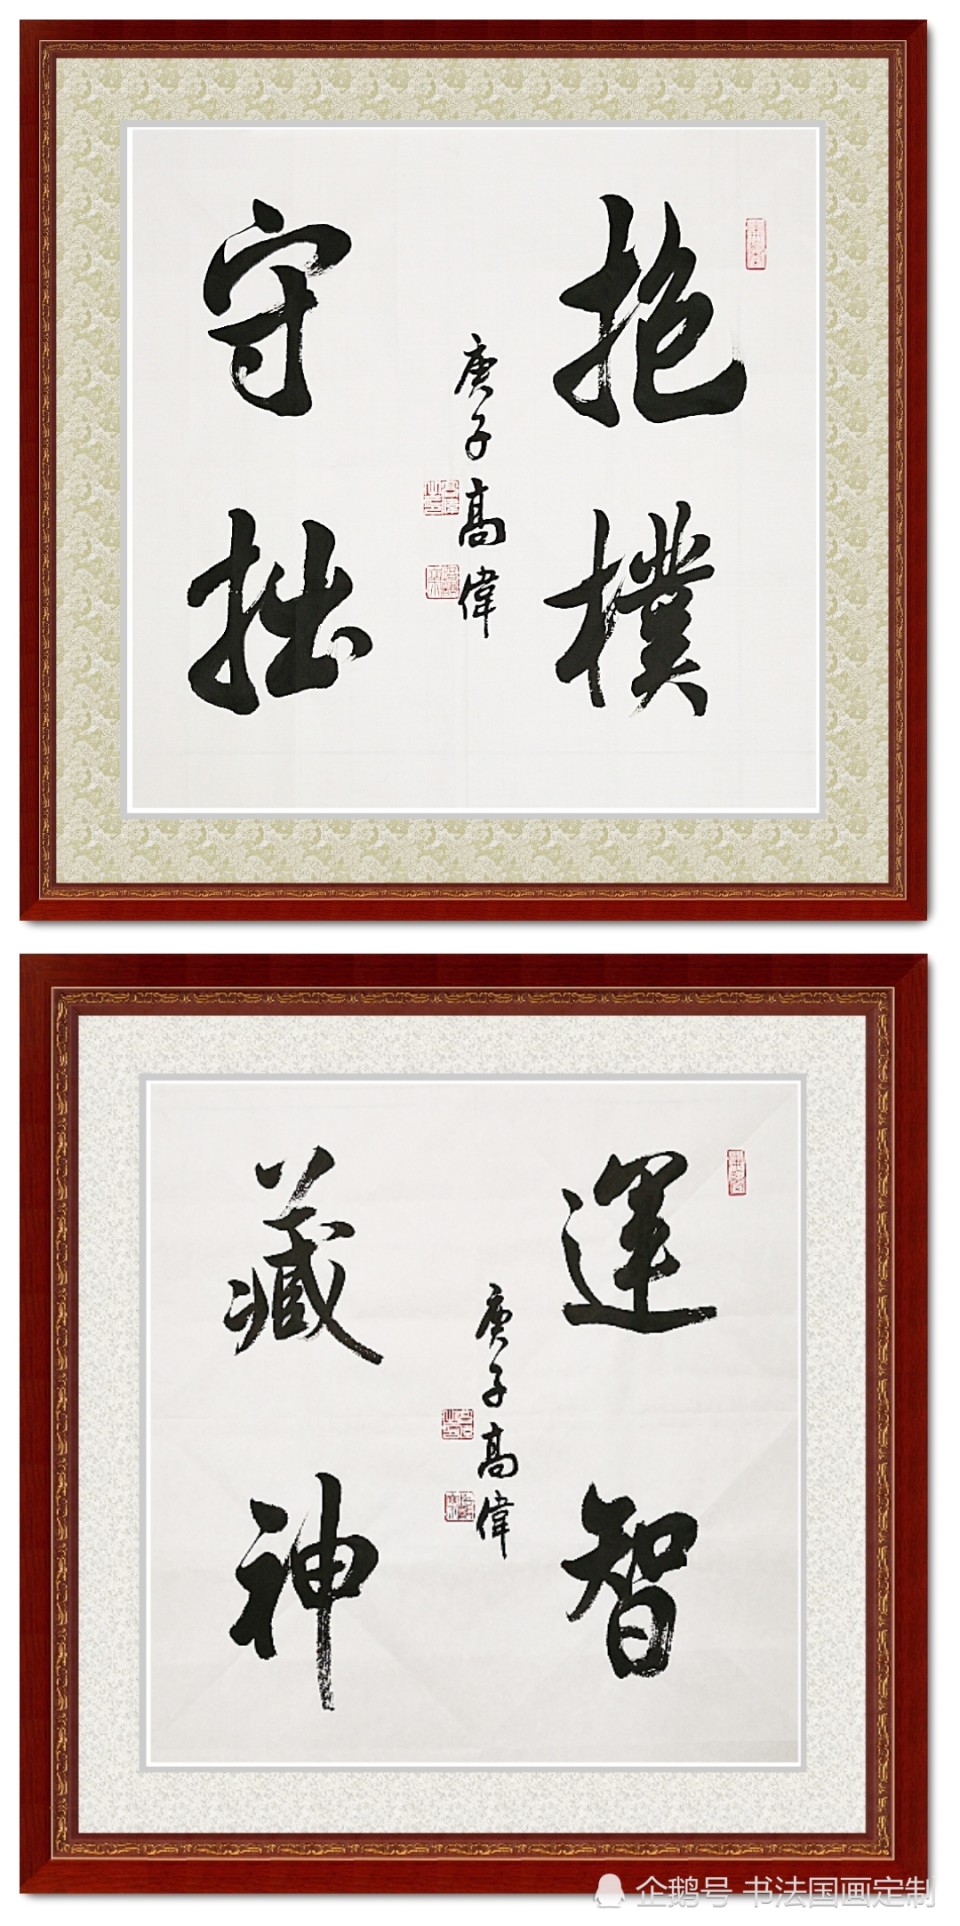 抱樸
守拙
庚子高偉
運智
藏神
庚子高偉
企鹅号 书法国画定制